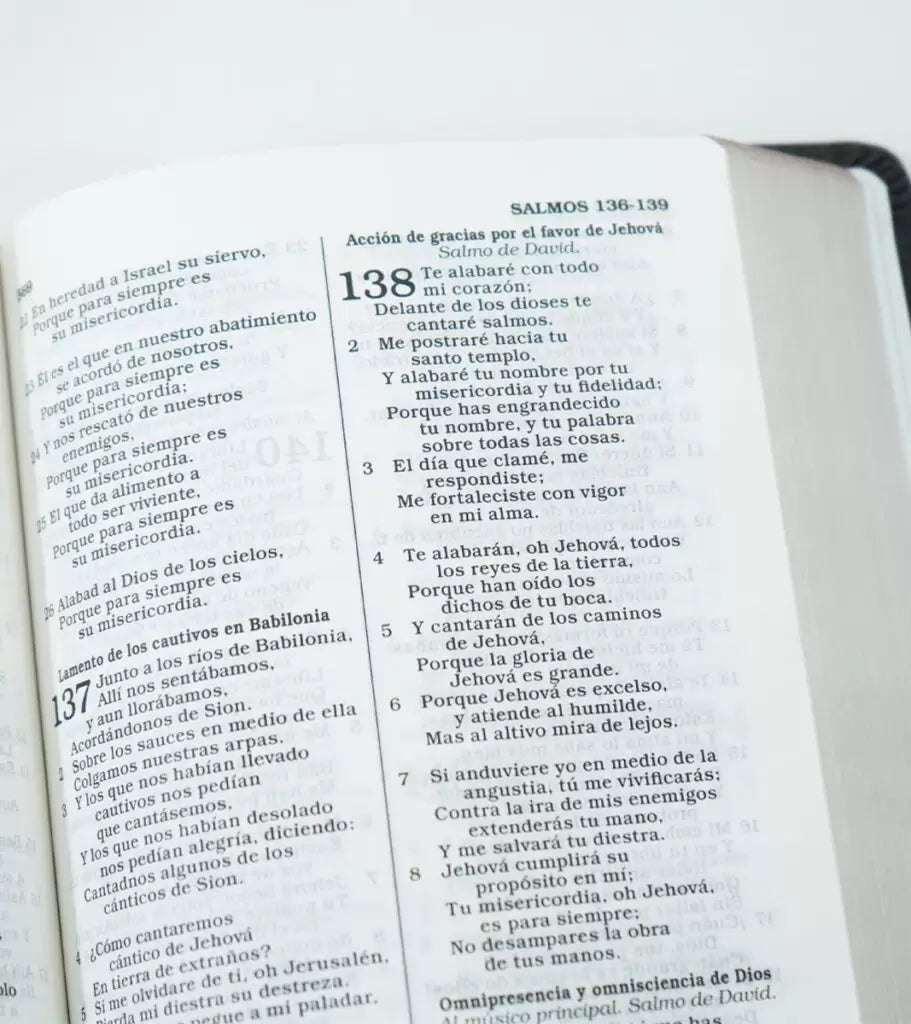 SALMOS 136-139
569
22 En heredad a Israel su siervo,
Porque para siempre es
su misericordia.
23 El es el que en nuestro abatimiento
se acordó de nosotros,
Porque para siempre es
su misericordia;
24 Y nos rescató de nuestros
enemigos,
Porque para siempre es
su misericordia.
25 El que da alimento a
todo ser viviente,
Porque para siempre es
su misericordia.
26 Alabad al Dios de los cielos,
Porque para siempre es
su misericordia.
Lamento de los cautivos en Babilonia
137 Junto a los ríos de Babilonia,
Allí nos sentábamos,
y aun llorábamos,
Acordándonos de Sion.
2 Sobre los sauces en medio de ella
Colgamos nuestras arpas.
3 Y los que nos habían llevado
cautivos nos pedían
que cantásemos,
Y los que nos habían desolado
nos pedían alegría, diciendo:
Cantadnos algunos de los
cánticos de Sion.
4 ¿Cómo cantaremos
cántico de Jehová
En tierra de extraños?
5 Si me olvidare de ti, oh Jerusalén,
mi diestra su destreza.
a mi paladar.
Acción de gracias por el favor de Jehová
Salmo de David.
138 Te alabaré con todo
mi corazón;
Delante de los dioses te
cantaré salmos.
2 Me postraré hacia tu
santo templo,
Y alabaré tu nombre por tu
misericordia y tu fidelidad;
Porque has engrandecido
tu nombre, y tu palabra
sobre todas las cosas.
3 El día que clamé, me
respondiste;
Me fortaleciste con vigor
en mi alma.
4 Te alabarán, oh Jehová, todos
los reyes de la tierra,
Porque han oído los
dichos de tu boca.
5 Y cantarán de los caminos
de Jehová,
Porque la gloria de
Jehová es grande.
6 Porque Jehová es excelso,
y atiende al humilde,
Mas al altivo mira de lejos.
7 Si anduviere yo en medio de la
angustia, tú me vivificarás;
Contra la ira de mis enemigos
extenderás tu mano,
Y me salvará tu diestra.
8 Jehová cumplirá su
propósito en mí;
Tu misericordia, oh Jehová,
es para siempre;
No desampares la obra
de tus manos.
Omnipresencia y omnisciencia de Dios
Al músico principal. Salmo de David.
has